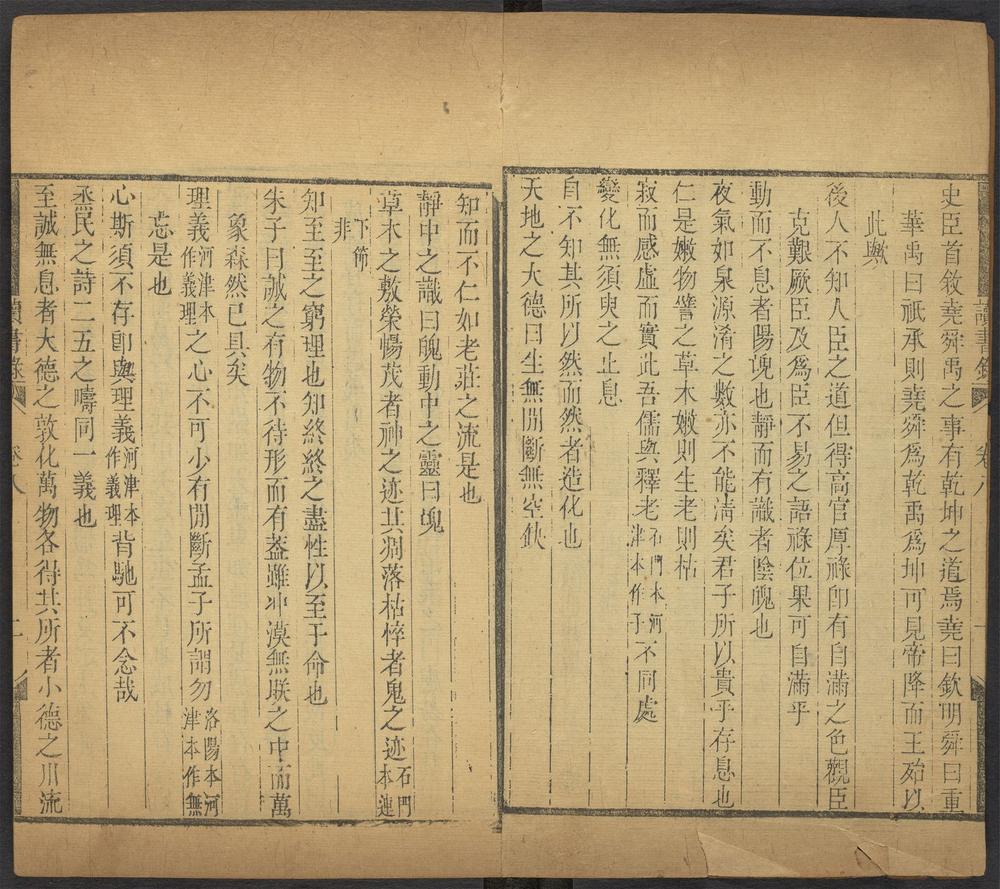 讀書錄 卷八
史臣首敘堯舜禹之事有乾坤之道焉堯曰欽明舜曰重
華禹曰祇承則堯舜爲乾禹爲坤可見帝降而王殆以
此歟
後人不知人臣之道但得高官厚祿卽有自滿之色觀臣
克艱厥臣及爲臣不易之語祿位果可自滿乎
動而不息者陽魂也靜而有識者陰魄也
夜氣如泉源淆之數亦不能清矣君子所以貴乎存息也
仁是嫩物譬之草木嫩則生老則枯
寂而感虛而實此吾儒與釋老石門本河津本作子不同處
變化無須臾之止息
自不知其所以然而然者造化也
天地之大德曰生無間斷無空缺
知而不仁如老莊之流是也
靜中之識曰魄動中之靈曰魂
草木之敷榮暢茂者神之迹其凋落枯悴者鬼之迹石門本連
下節非
知至至之窮理也知終終之盡性以至于命也
朱子曰誠之有物不待形而有蓋雖冲漠無朕之中而萬
象森然已具矣
理義河津本作義理之心不可少有間斷孟子所謂勿洛陽本河津本作無
忘是也
心斯須不存卽與理義河津本作義理背馳可不念哉
烝民之詩二五之疇同一義也
至誠無息者大德之敦化萬物各得其所者小德之川流
讀書錄 卷八 二